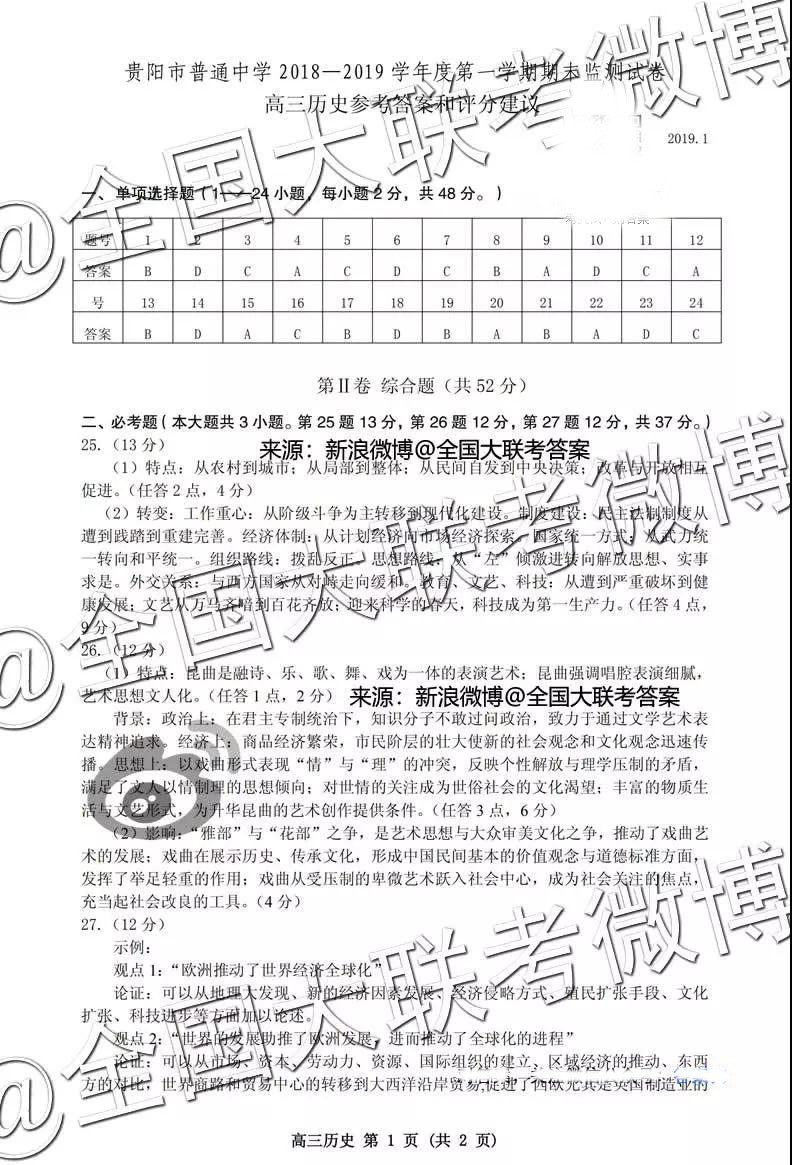 贵阳市普通中学2018—2019学年度第一学期期末监测试卷
高三历史参考答案和评分建议
2019.1
一、单项选择题（1——24小题，每小题2分，共48分。）
题号 1 2 3 4 5 6 7 8 9 10 11 12
答案 B D C A C D C B A D C A
号 13 14 15 16 17 18 19 20 21 22 23 24
答案 B D A C B D B A B A D C
第Ⅱ卷 综合题（共52分）
二、必考题（本大题共3小题。第25题13分，第26题12分，第27题12分，共37分。）
25.（13分）
来源：新浪微博@全国大联考答案
（1）特点：从农村到城市；从局部到整体；从民间自发到中央决策；改革与开放相互
促进。（任答2点，4分）
（2）转变：工作重心：从阶级斗争为主转移到现代化建设。制度建设：民主法制制度从
遭到践踏到重建完善。经济体制：从计划经济向市场经济探索。国家统一方式：从武力统
一转向和平统一。组织路线：拨乱反正。思想路线：从“左”倾激进转向解放思想、实事
求是。外交关系：与西方国家从对峙走向缓和。教育、文艺、科技：从遭到严重破坏到健
康发展；文艺从万马齐喑到百花齐放；迎来科学的春天，科技成为第一生产力。（任答4点，
9分）
26.（12分）
（1）特点：昆曲是融诗、乐、歌、舞、戏为一体的表演艺术；昆曲强调唱腔表演细腻，
艺术思想文人化。（任答1点，2分）
来源：新浪微博@全国大联考答案
背景：政治上：在君主专制统治下，知识分子不敢过问政治，致力于通过文学艺术表
达精神追求。经济上：商品经济繁荣，市民阶层的壮大使新的社会观念和文化观念迅速传
播。思想上：以戏曲形式表现“情”与“理”的冲突，反映个性解放与理学压制的矛盾，
满足了文人以情制理的思想倾向；对世情的关注成为世俗社会的文化渴望；丰富的物质生
活与文艺形式，为升华昆曲的艺术创作提供条件。（任答3点，6分）
（2）影响：“雅部”与“花部”之争，是艺术思想与大众审美文化之争，推动了戏曲艺
术的发展；戏曲在展示历史、传承文化，形成中国民间基本的价值观念与道德标准方面，
发挥了举足轻重的作用；戏曲从受压制的卑微艺术跃入社会中心，成为社会关注的焦点，
充当起社会改良的工具。（4分）
27.（12分）
示例：
观点1：“欧洲推动了世界经济全球化”
论证：可以从地理大发现、新的经济因素发展、经济侵略方式、殖民扩张手段、文化
扩张、科技进步等方面加以论述。
观点2：“世界的发展助推了欧洲发展，进而推动了全球化的进程”
论证：可以从市场、资本、劳动力、资源、国际组织的建立、区域经济的推动、东西
方的对比，世界商路和贸易中心的转移到大西洋沿岸贸易促进了西欧尤其是英国制造业的
高三历史 第 1 页（共 2 页）
@全国大联考微博
@全国大联考微博
@全国大联考微博